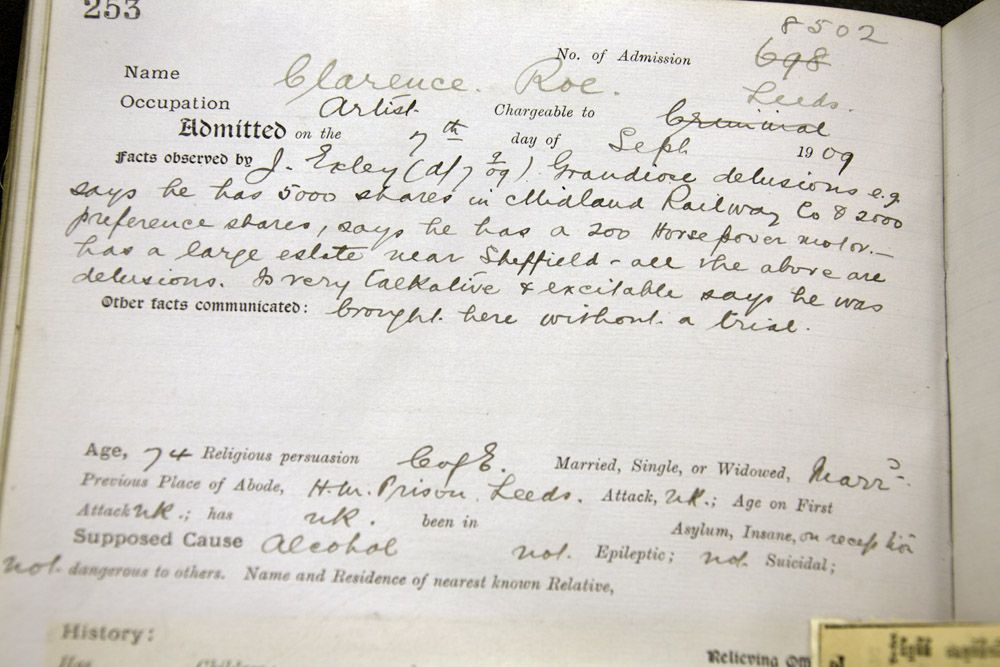 253
8502
No. of Admission 698
Name Clarence. Roe. Leeds.
Occupation Artist Chargeable to Criminal
Admitted on the 7th day of Sept 1909
Facts observed by J. Exley (d/7 9/09) Grandiose delusions e.g.
says he has 5000 shares in Midland Railway Co & 2000
preference shares, says he has a 200 Horsepower motor. —
has a large estate near Sheffield - all the above are
delusions. Is very talkative & excitable says he was
Other facts communicated: brought here without a trial.
Age, 74 Religious persuasion C of E. Married, Single, or Widowed, Marrd.
Previous Place of Abode, H.M. Prison Leeds. Attack, UK.; Age on First
Attack UK.; has UK. been in Asylum, Insane, on reception
Supposed Cause Alcohol not. Epileptic; not. Suicidal;
not. dangerous to others. Name and Residence of nearest known Relative,
History:
Has Relieving